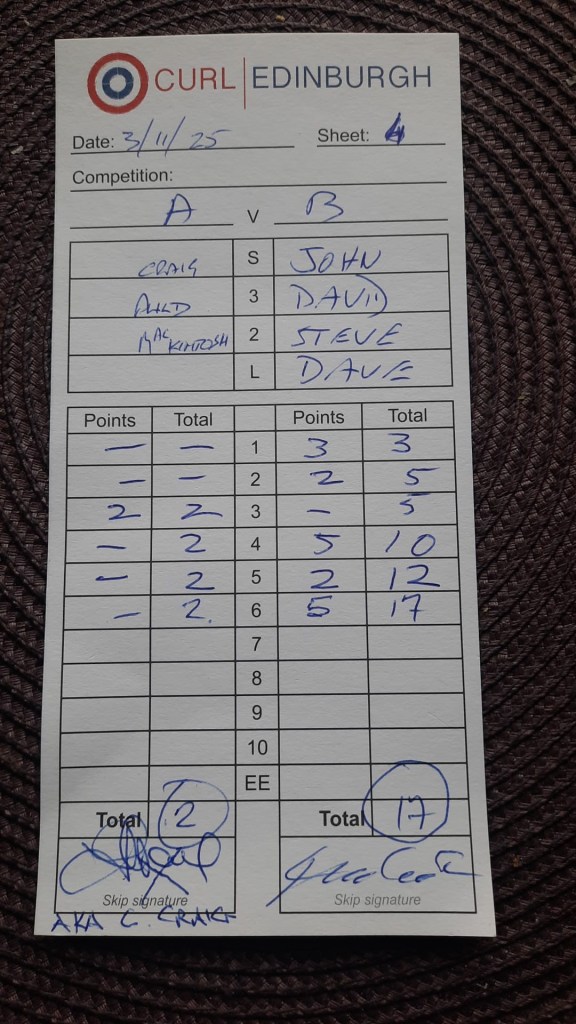 CURL | EDINBURGH
Date: 3/11/25 Sheet: 4
Competition:
A V B
CRAIG S JOHN
AULD 3 DAVID
MACKINTOSH 2 STEVE
L DAVE
Points Total Points Total
— — 1 3 3
— — 2 2 5
2 2 3 - 5
- 2 4 5 10
- 2 5 2 12
- 2. 6 5 17
7
8
9
10
EE
Total 2 Total 17
Skip signature Skip signature
AKA C.